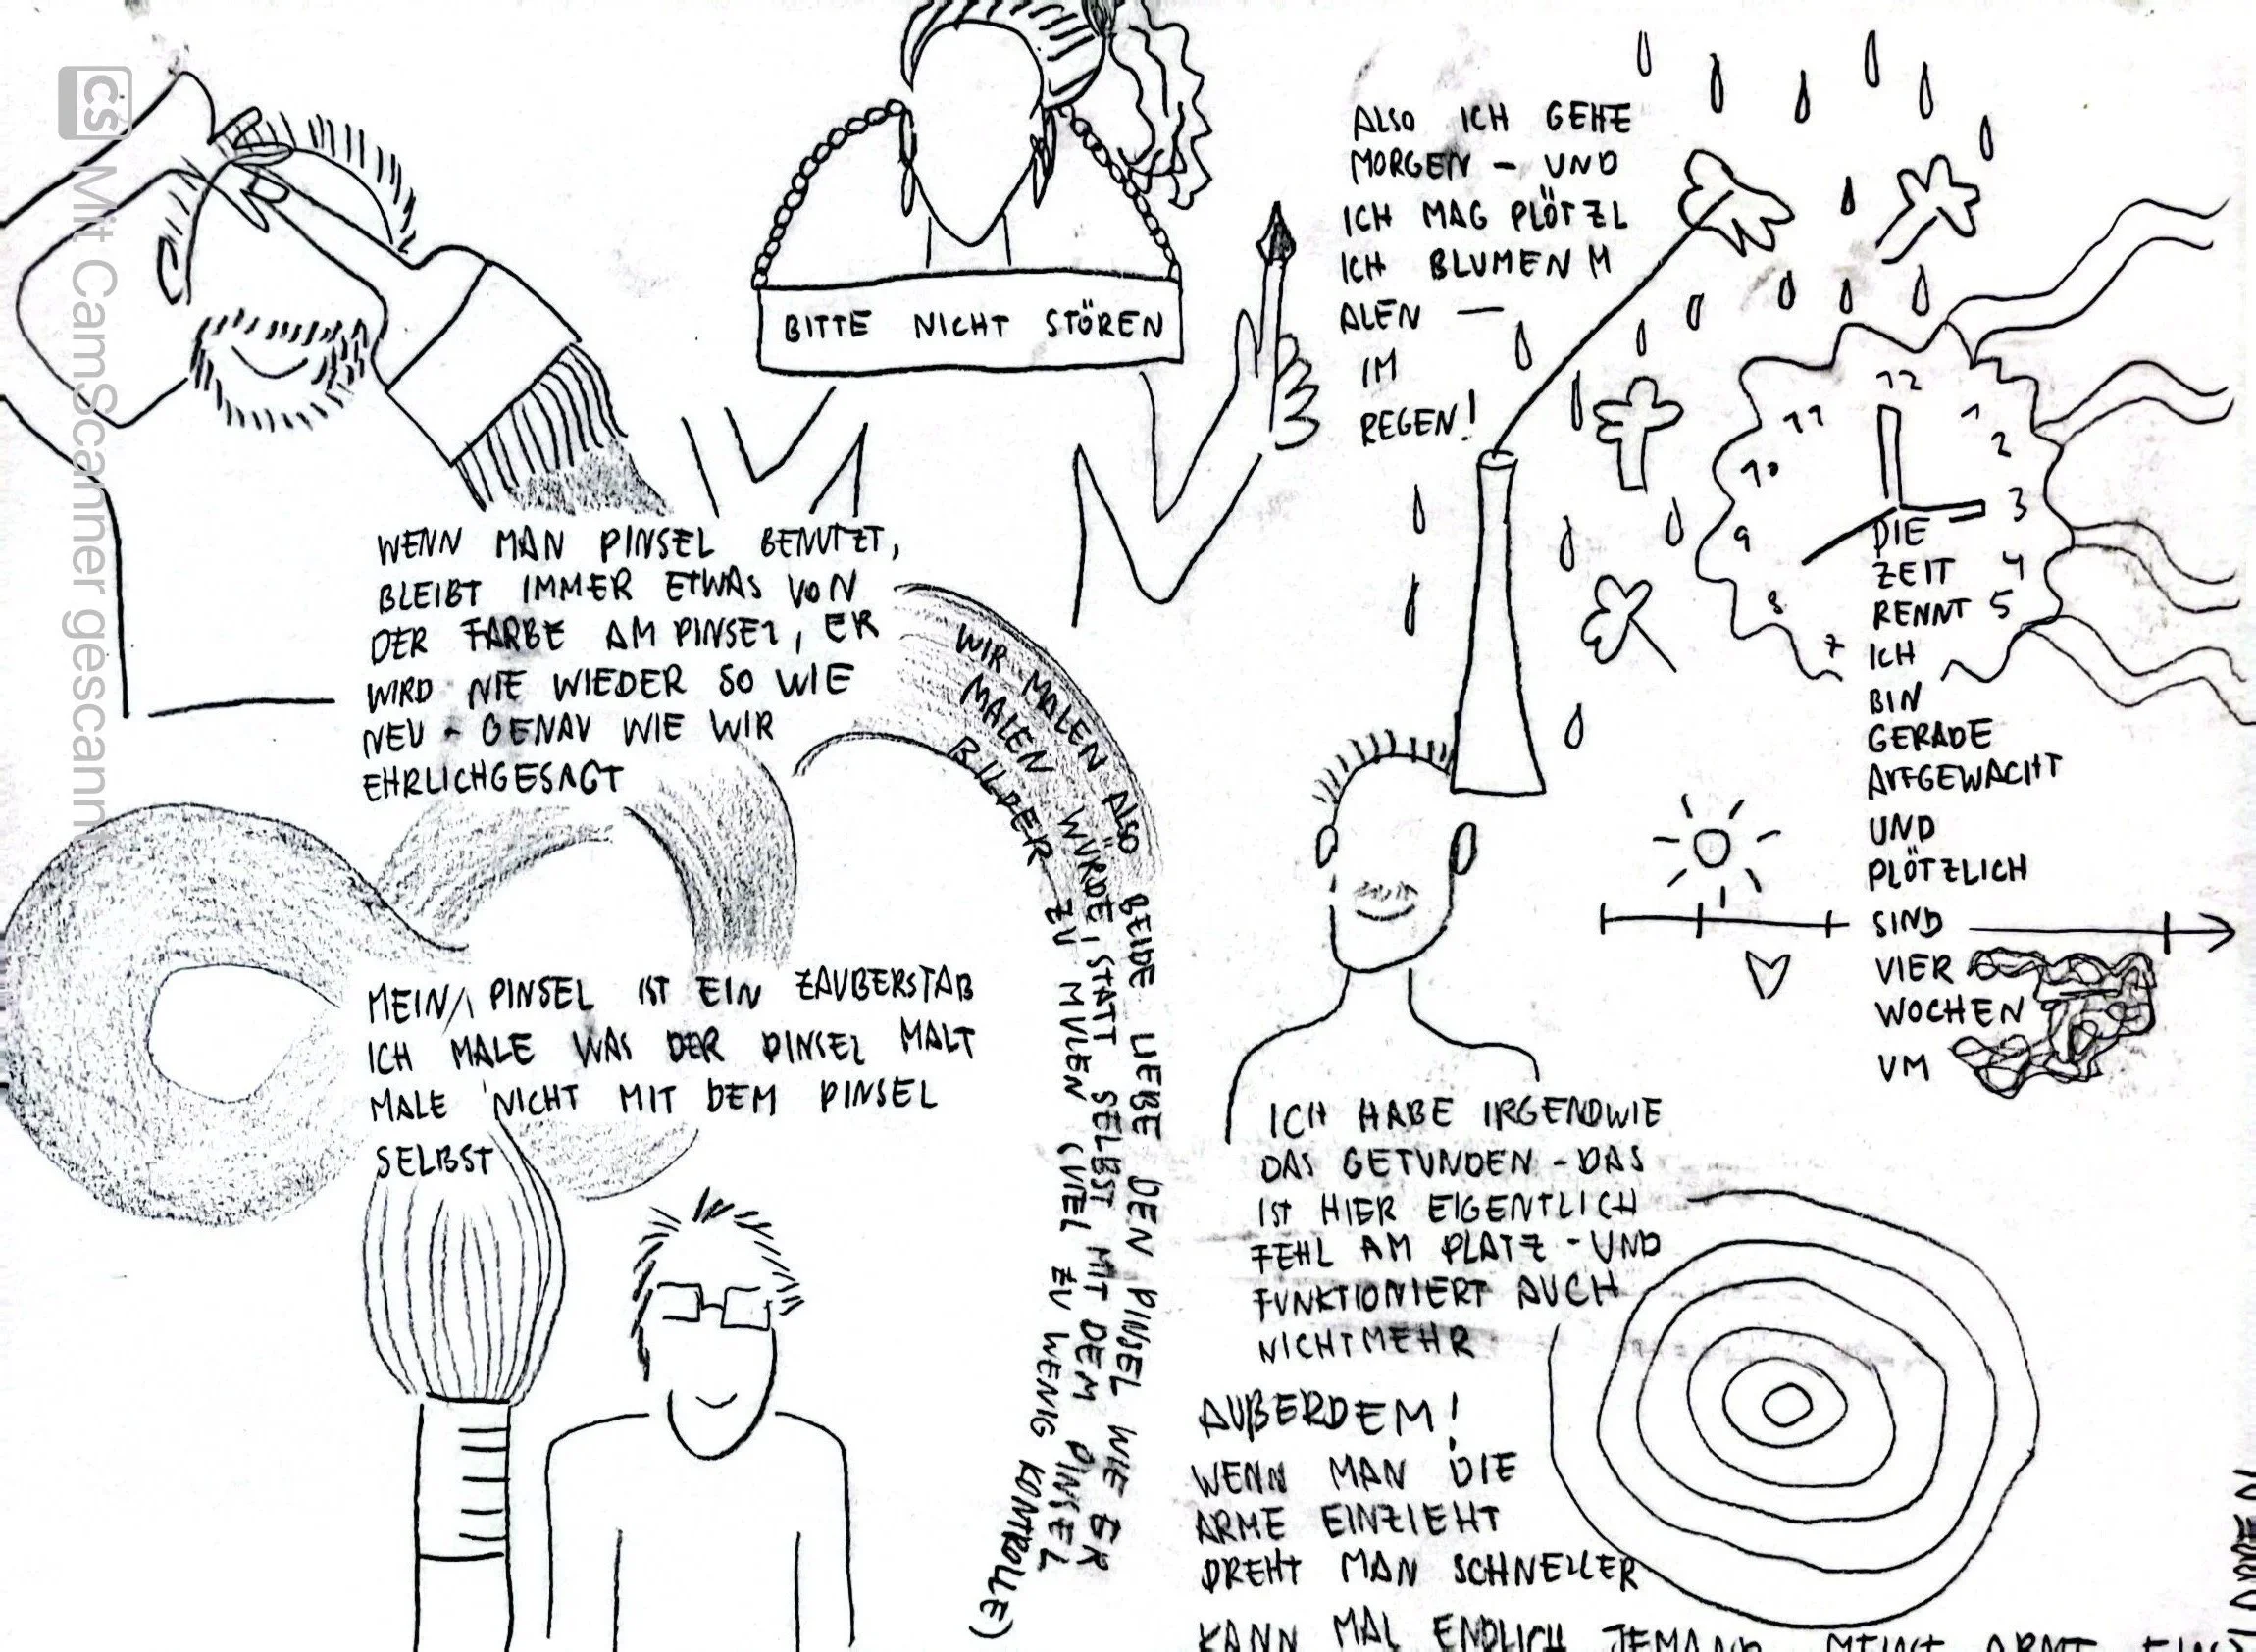 CS Mit CamScanner gescannt
BITTE NICHT STÖREN
ALSO ICH GEHE
MORGEN – UND
ICH MAG PLÖTZL
ICH BLUMEN M
ALEN —
IM
REGEN!
12
1
2
3
4
5
7
8
9
10
11
DIE
ZEIT
RENNT
ICH
BIN
GERADE
AUFGEWACHT
UND
PLÖTZLICH
SIND
VIER
WOCHEN
UM
WENN MAN PINSEL BENUTZT,
BLEIBT IMMER ETWAS VON
DER FARBE AM PINSEL, ER
WIRD NIE WIEDER SO WIE
NEU - GENAU WIE WIR
EHRLICHGESAGT
WIR MALEN ALSO BEIDE LIEBE DEN PINSEL WIE ER
MALEN WÜRDE, STATT SELBST MIT DEM PINSEL
BILDER ZU MULEN (VIEL ZU WENIG KONTROLLE)
MEIN PINSEL IST EIN ZAUBERSTAB
ICH MALE WAS DER PINSEL MALT
MALE NICHT MIT DEM PINSEL
SELBST
ICH HABE IRGENDWIE
DAS GEFUNDEN - DAS
IST HIER EIGENTLICH
FEHL AM PLATZ - UND
FUNKTIONIERT AUCH
NICHTMEHR
AUßERDEM!
WENN MAN DIE
ARME EINZIEHT
DREHT MAN SCHNELLER
KANN MAL ENDLICH JEMAND MEINE ARME